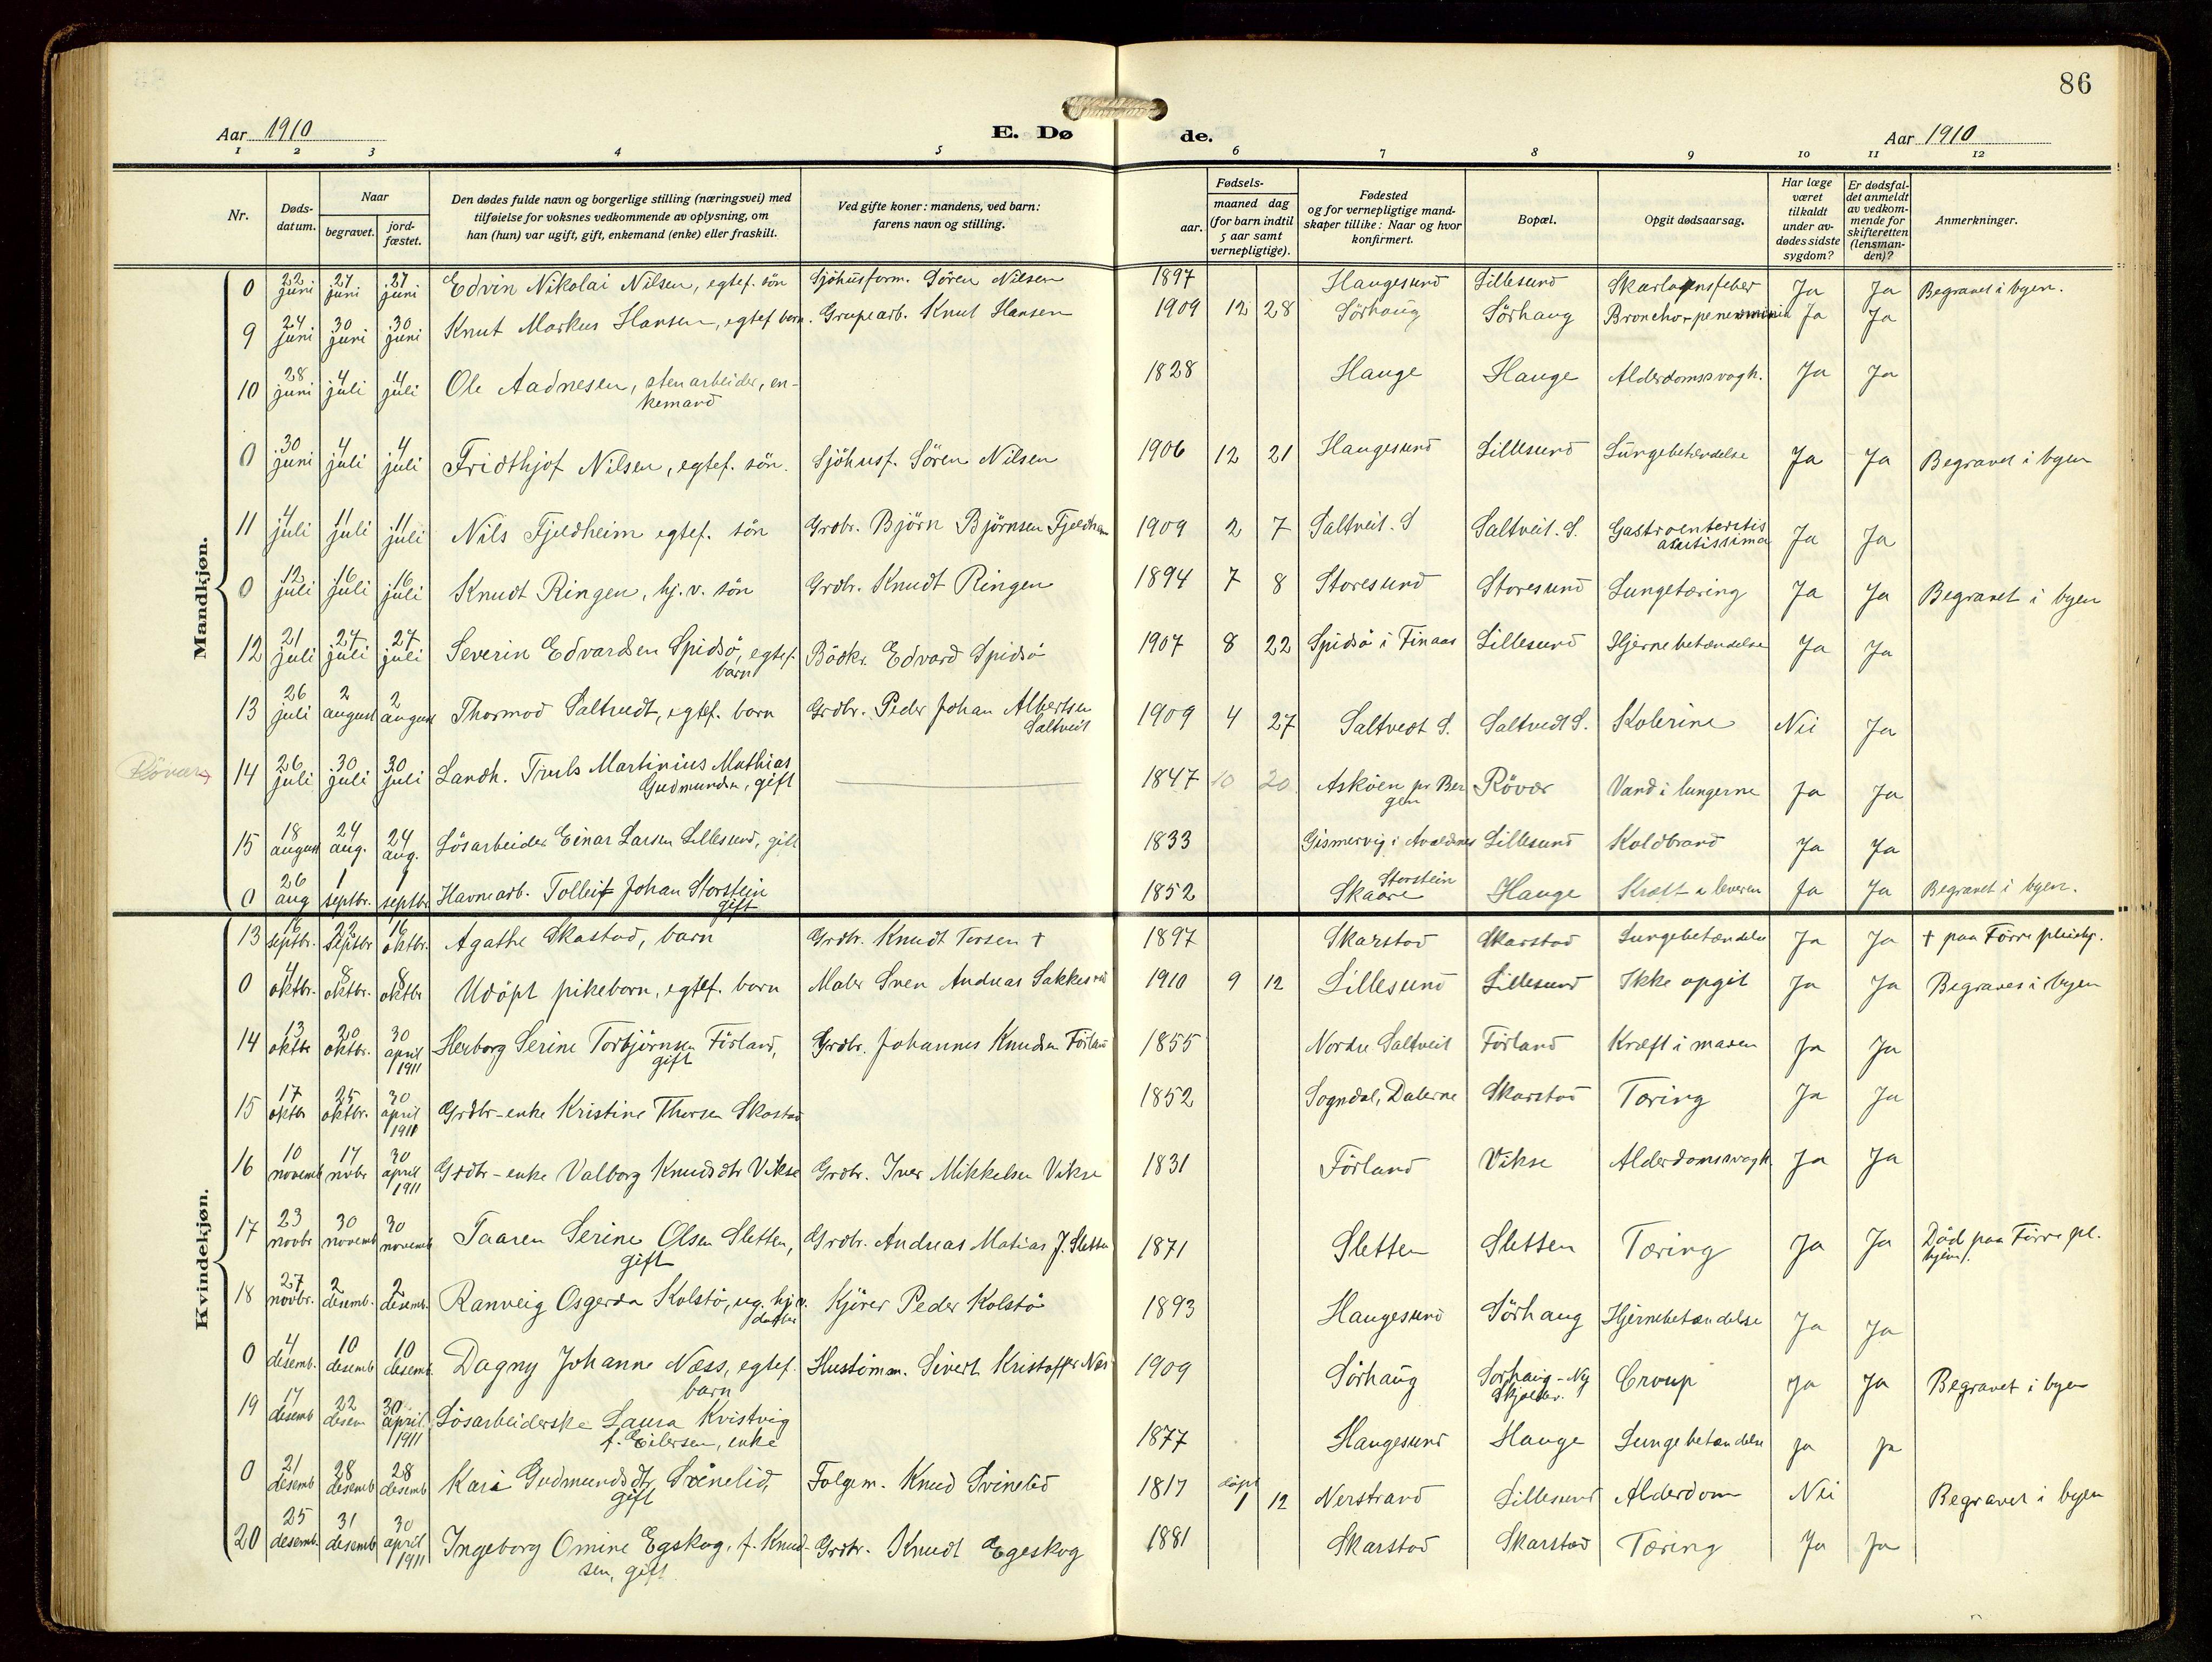 86
Aar 1910
E. Dø de.
Aar 1910
1 2 3 4 5 6 7 8 9 10 11 12
Nr.
Døds-
datum.
Naar
begravet.
jord-
fæstet.
Den dødes fulde navn og borgerlige stilling (næringsvei) med
tilføielse for voksnes vedkommende av oplysning, om
han (hun) var ugift, gift, enkemand (enke) eller fraskilt.
Ved gifte koner: mandens, ved barn:
farens navn og stilling.
Fødsels-
aar. maaned dag
(for barn indtil
5 aar samt
vernepligtige).
Fødested
og for vernepligtige mand-
skaper tillike: Naar og hvor
konfirmert.
Bopæl.
Opgit dødsaarsag.
Har læge
været
tilkaldt
under av-
dødes sidste
sygdom?
Er dødsfal-
det anmeldt
av vedkom-
mende for
skifteretten
(lensman-
den)?
Anmerkninger.
Mandkjøn.
0 22 juni 27 juni 27 juni Edvin Nikolai Nilsen, egtef. sön Sjöhusform. Sören Nilsen 1897 Haugesund Lillesund Skarlagensfeber Ja Ja Begravet i byen.
9 24 juni 30 juni 30 juni Knut Markus Hansen, egtef barn. Grupearb. Knut Hansen 1909 12 28 Sörhaug Sörhaug Broncho-penevmonia Ja Ja
10 28 juni 4 juli 4 juli Ole Aadnesen, stenarbeider, en-
kemand 1828 Hauge Hauge Alderdomssvagh. Ja Ja
0 30 juni 4 juli 4 juli Fridthjof Nilsen, egtef. sön. Sjöhusf. Sören Nilsen 1906 12 21 Haugesund Lillesund Lungebetændelse Ja Ja Begravet i byen
11 4 juli 11 juli 11 juli Nils Fjeldheim egtef. sön Grdbr. Björn Björnsen Fjeldheim 1909 2 7 Saltveit. S Saltveit. S. Gastroenteritis
acutissima Ja Ja
0 12 juli 16 juli 16 juli Knudt Ringen, hj. v. sön Grdbr. Knudt Ringen 1894 7 8 Storesund Storesund Lungetæring Ja Ja Begravet i byen
12 21 juli 27 juli 27 juli Severin Edvardsen Spidsö, egtef.
barn Bödkr. Edvard Spidsö 1907 8 22 Spidsö i Finaas Lillesund Hjernebetændelse Ja Ja
13 26 juli 2 august 2 august Thormod Saltvedt, egtef. barn Grdbr. Peder Johan Albertsen
Saltveit 1909 4 27 Saltvedt S. Saltvedt S. Kolerine Nei Ja
Rövær 14 26 juli 30 juli 30 juli Landh. Truls Martinius Mathias
Gudmundsen, gift 1847 10 20. Asköen pr Ber
gen Rövær Vand i lungerne Ja Ja
15 18 august 24 aug. 24 aug. Lösarbeider Einar Larsen Lillesund, gift 1833 Gismervig i Avaldsnes Lillesund Koldbrand Ja Ja
0 26 aug 1 septbr. 1 septbr. Havnearb. Tolleif Johan Storstein
gift 1852 Storstein
Skaare Hauge Kræft i leveren Ja Ja Begravet i byen.
Kvindekjøn.
13 16 septbr. 22 septbr 16 oktbr. Agathe Skastad, barn Grdbr. Knudt Torsen + 1897 Skarstad Skarstad Lungebetændelse Ja Ja + paa Förre pleiehj.
0 4 oktbr. 8 oktbr. 8 oktbr Udöpt pikebarn, egtef. barn Maler Sven Andreas Sakkestad 1910 9 12 Lillesund Lillesund Ikke opgit Ja Ja Begravet i byen
14 13 oktbr 20 oktbr. 30 april 1911 Herborg Serine Torbjörnsen Förland,
gift Grdbr. Johannes Knudsen Förland 1855 Nordre Saltveit Förland Kræft i maven Ja Ja
15 17 oktbr 25 oktbr. 30 april 1911 Grdbr-enke Kristine Thorsen Skastad 1852 Sogndal, Dalerne Skarstad Tæring Ja Ja
16 10 novemb 17 novbr 30 april 1911 Grdbr-enke Valborg Knudsdtr Vikse Grdbr. Iver Mikkelsen Vikse 1831 Förland Vikse Alderdomssvagh Ja Ja
17 23 novbr 30 novemb 30 novemb Taaren Serine Olsen Sletten,
gift Grdbr. Andreas Matias J. Sletten 1871 Sletten Sletten Tæring Ja Ja Död paa Förre pl.
hjem.
18 27 novbr. 2 desemb. 2 desemb. Ranveig Osgerda Kolstö, ug. hjv.
datter Kjörer Peder Kolstö 1893 Haugesund Sörhaug Hjernebetændelse Ja Ja
0 4 desemb. 10 desemb 10 desemb. Dagny Johanne Næss, egtef.
barn Hustömm. Sivert Kristoffer Næs 1909 Sörhaug Sörhaug-Ny
Skjolder. Croup Ja Ja Begravet i byen
19 17 desemb 22 desem 30 april 1911 Lösarbeiderske Laura Kvistvig
f. Eilersen, enke 1877 Haugesund Hauge Lungebetændelse Ja Ja
0 21 desemb 28 desemb 28 desemb Kari Gudmundsdtr Svinelid,
gift Folgem. Knud Svinelid 1817 döpt
1 12 Nerstrand Lillesund Alderdom Nei Begravet i byen
20 25 desemb. 31 desemb 30 april 1911 Ingeborg Omine Egskog, f. Knud-
sen, gift. Grdbr. Knudt Egeskog 1881 Skarstad Skarstad Tæring Ja Ja